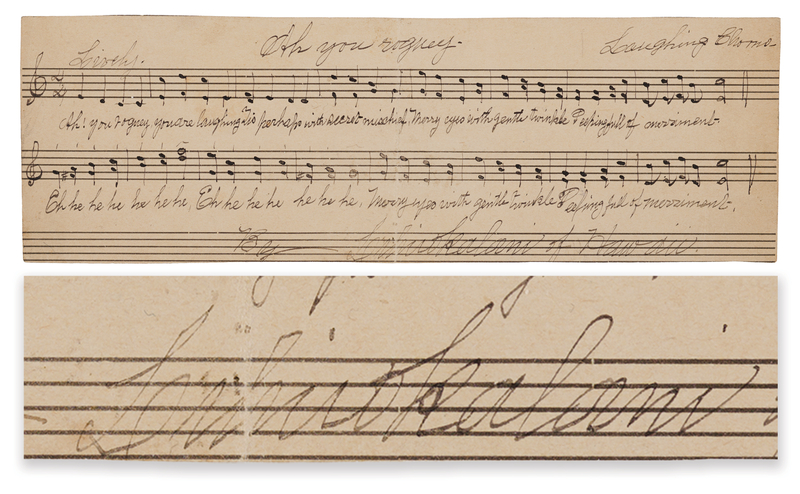 Lively. Ah you roguey. Laughing Chorus
Ah! you roguey you are laughing, Tis perhaps with secret mischief, Merry eyes with gentle twinkle Peeping full of merriment.
Eh he he he he he he, Eh he he he he he he, Merry eyes with gentle twinkle Peeping full of merriment.
By Liliuokalani of Hawaii.
Liliuokalani